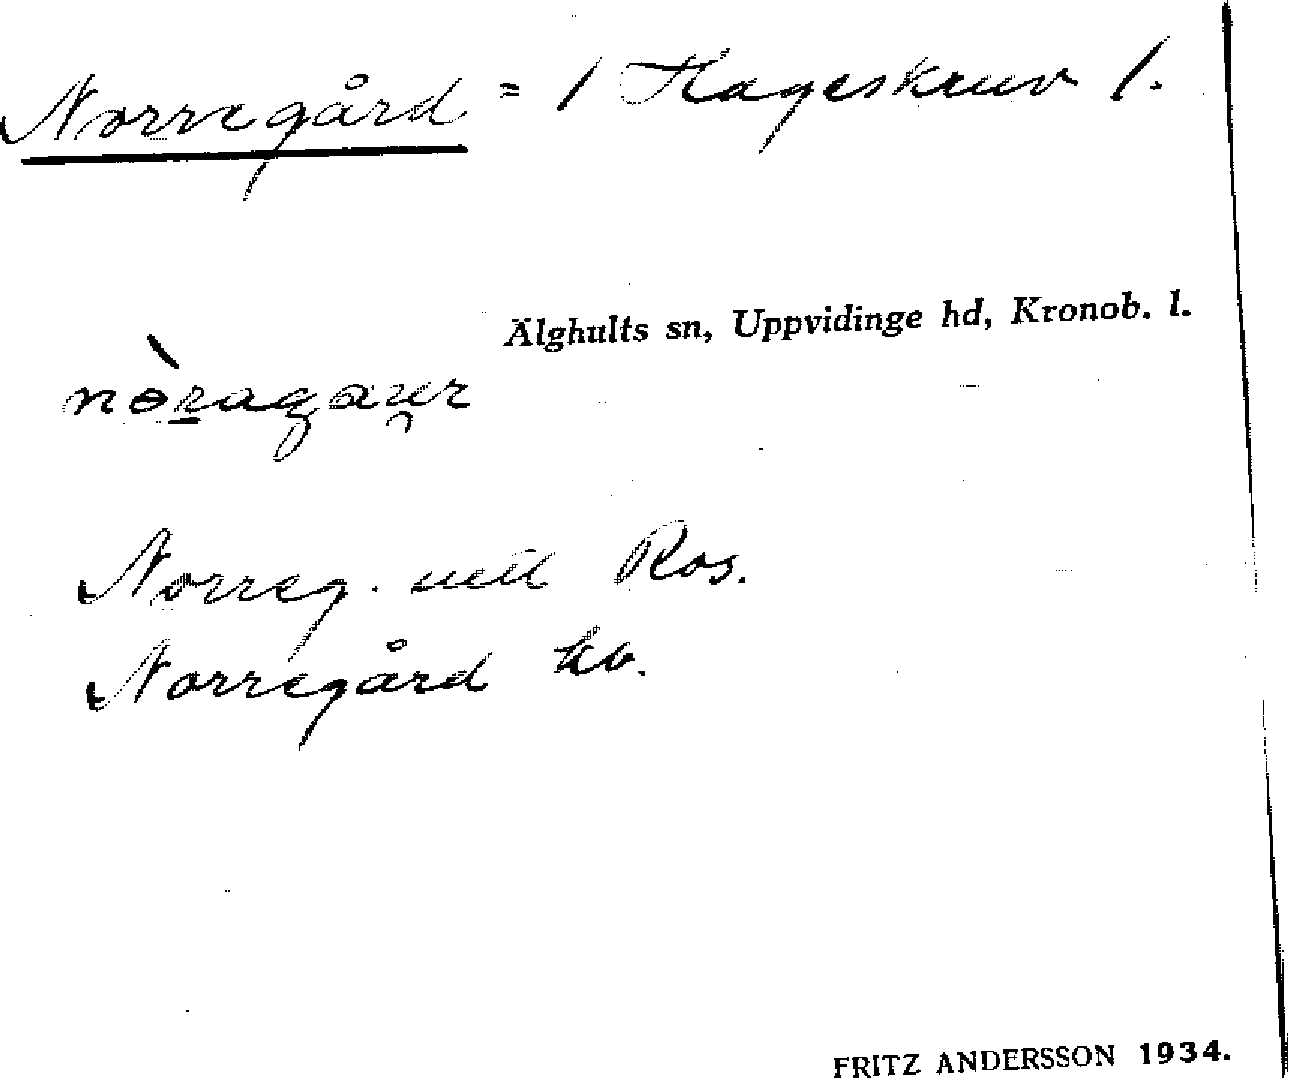 Norregård = / Hageskruv 1.
Älghults sn, Uppvidinge hd, Kronob. l.
Norreg. uell Ros.
Norregård kb.
FRITZ ANDERSSON 1934.